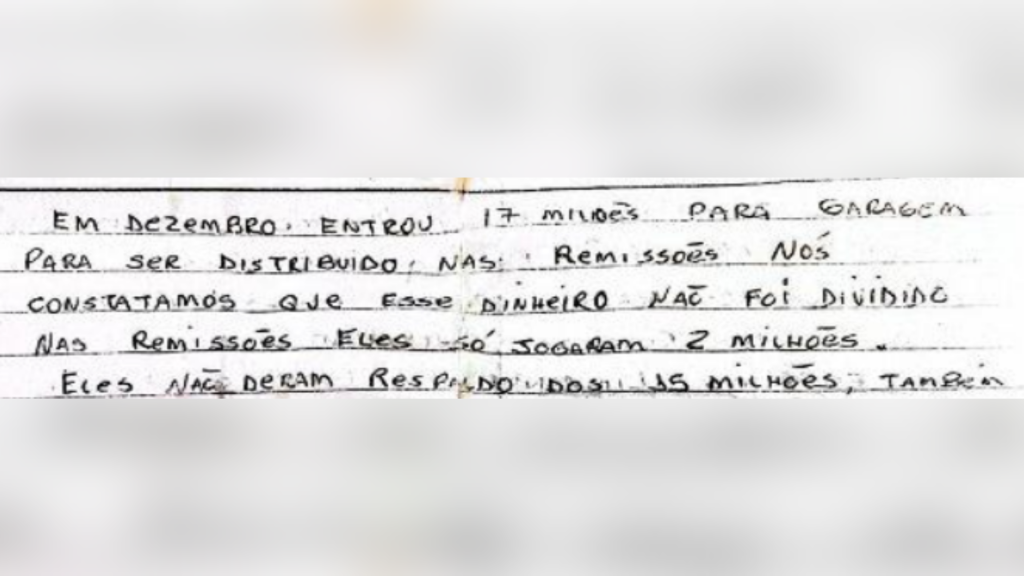 EM DEZEMBRO. ENTROU 17 MILHÕES PARA GARAGEM
PARA SER DISTRIBUIDO NAS Remissões NÓS
CONSTATAMOS QUE ESSE DINHEIRO NÃO FOI DIVIDIDO
NAS Remissões ELES SÓ JOGARAM 2 MILHÕES.
ELES NÃO DERAM RESPALDO DOS 15 MILHÕES, TAMBÉM